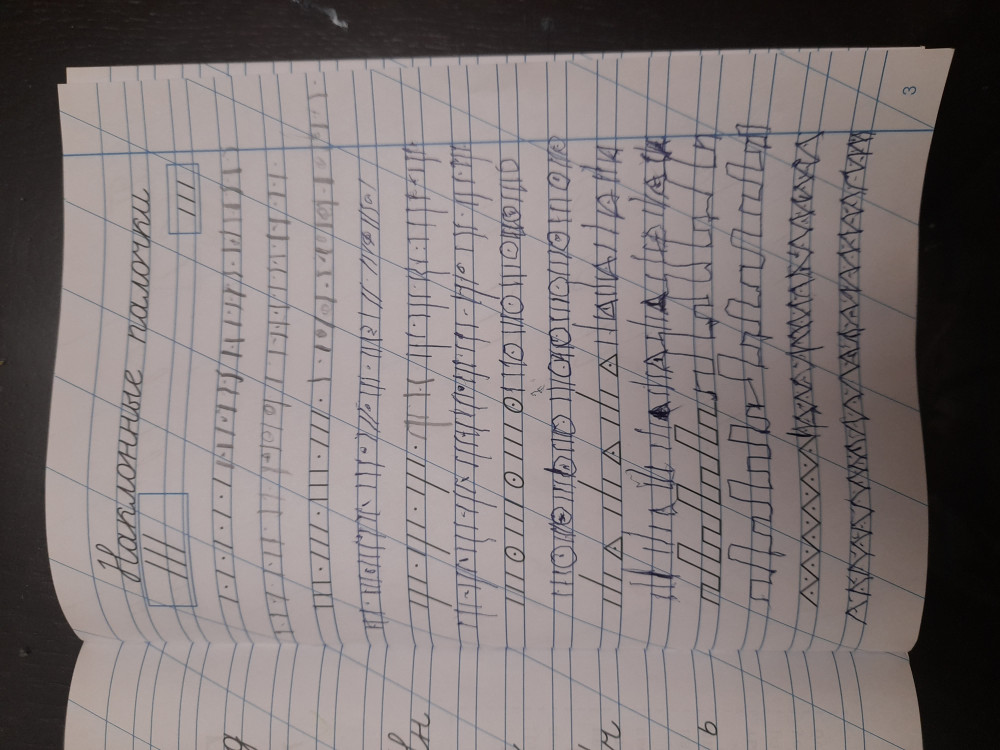 Наклонные палочки
3